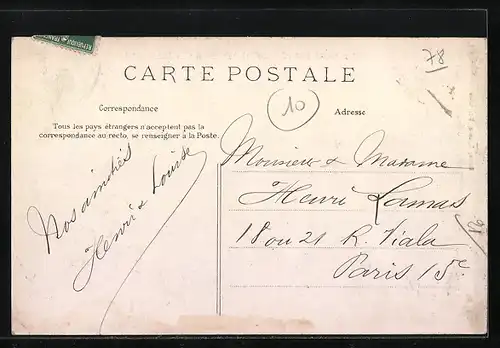 REPUBLIQUE FRANC
78
CARTE POSTALE
10
Correspondance
Adresse
Tous les pays étrangers n'acceptent pas la
correspondance au recto, se renseigner à la Poste.
Nos amitiés
Henri & Louise
Monsieur & Madame
Henri Lamas
18 ou 21 R. Viala
Paris 15e